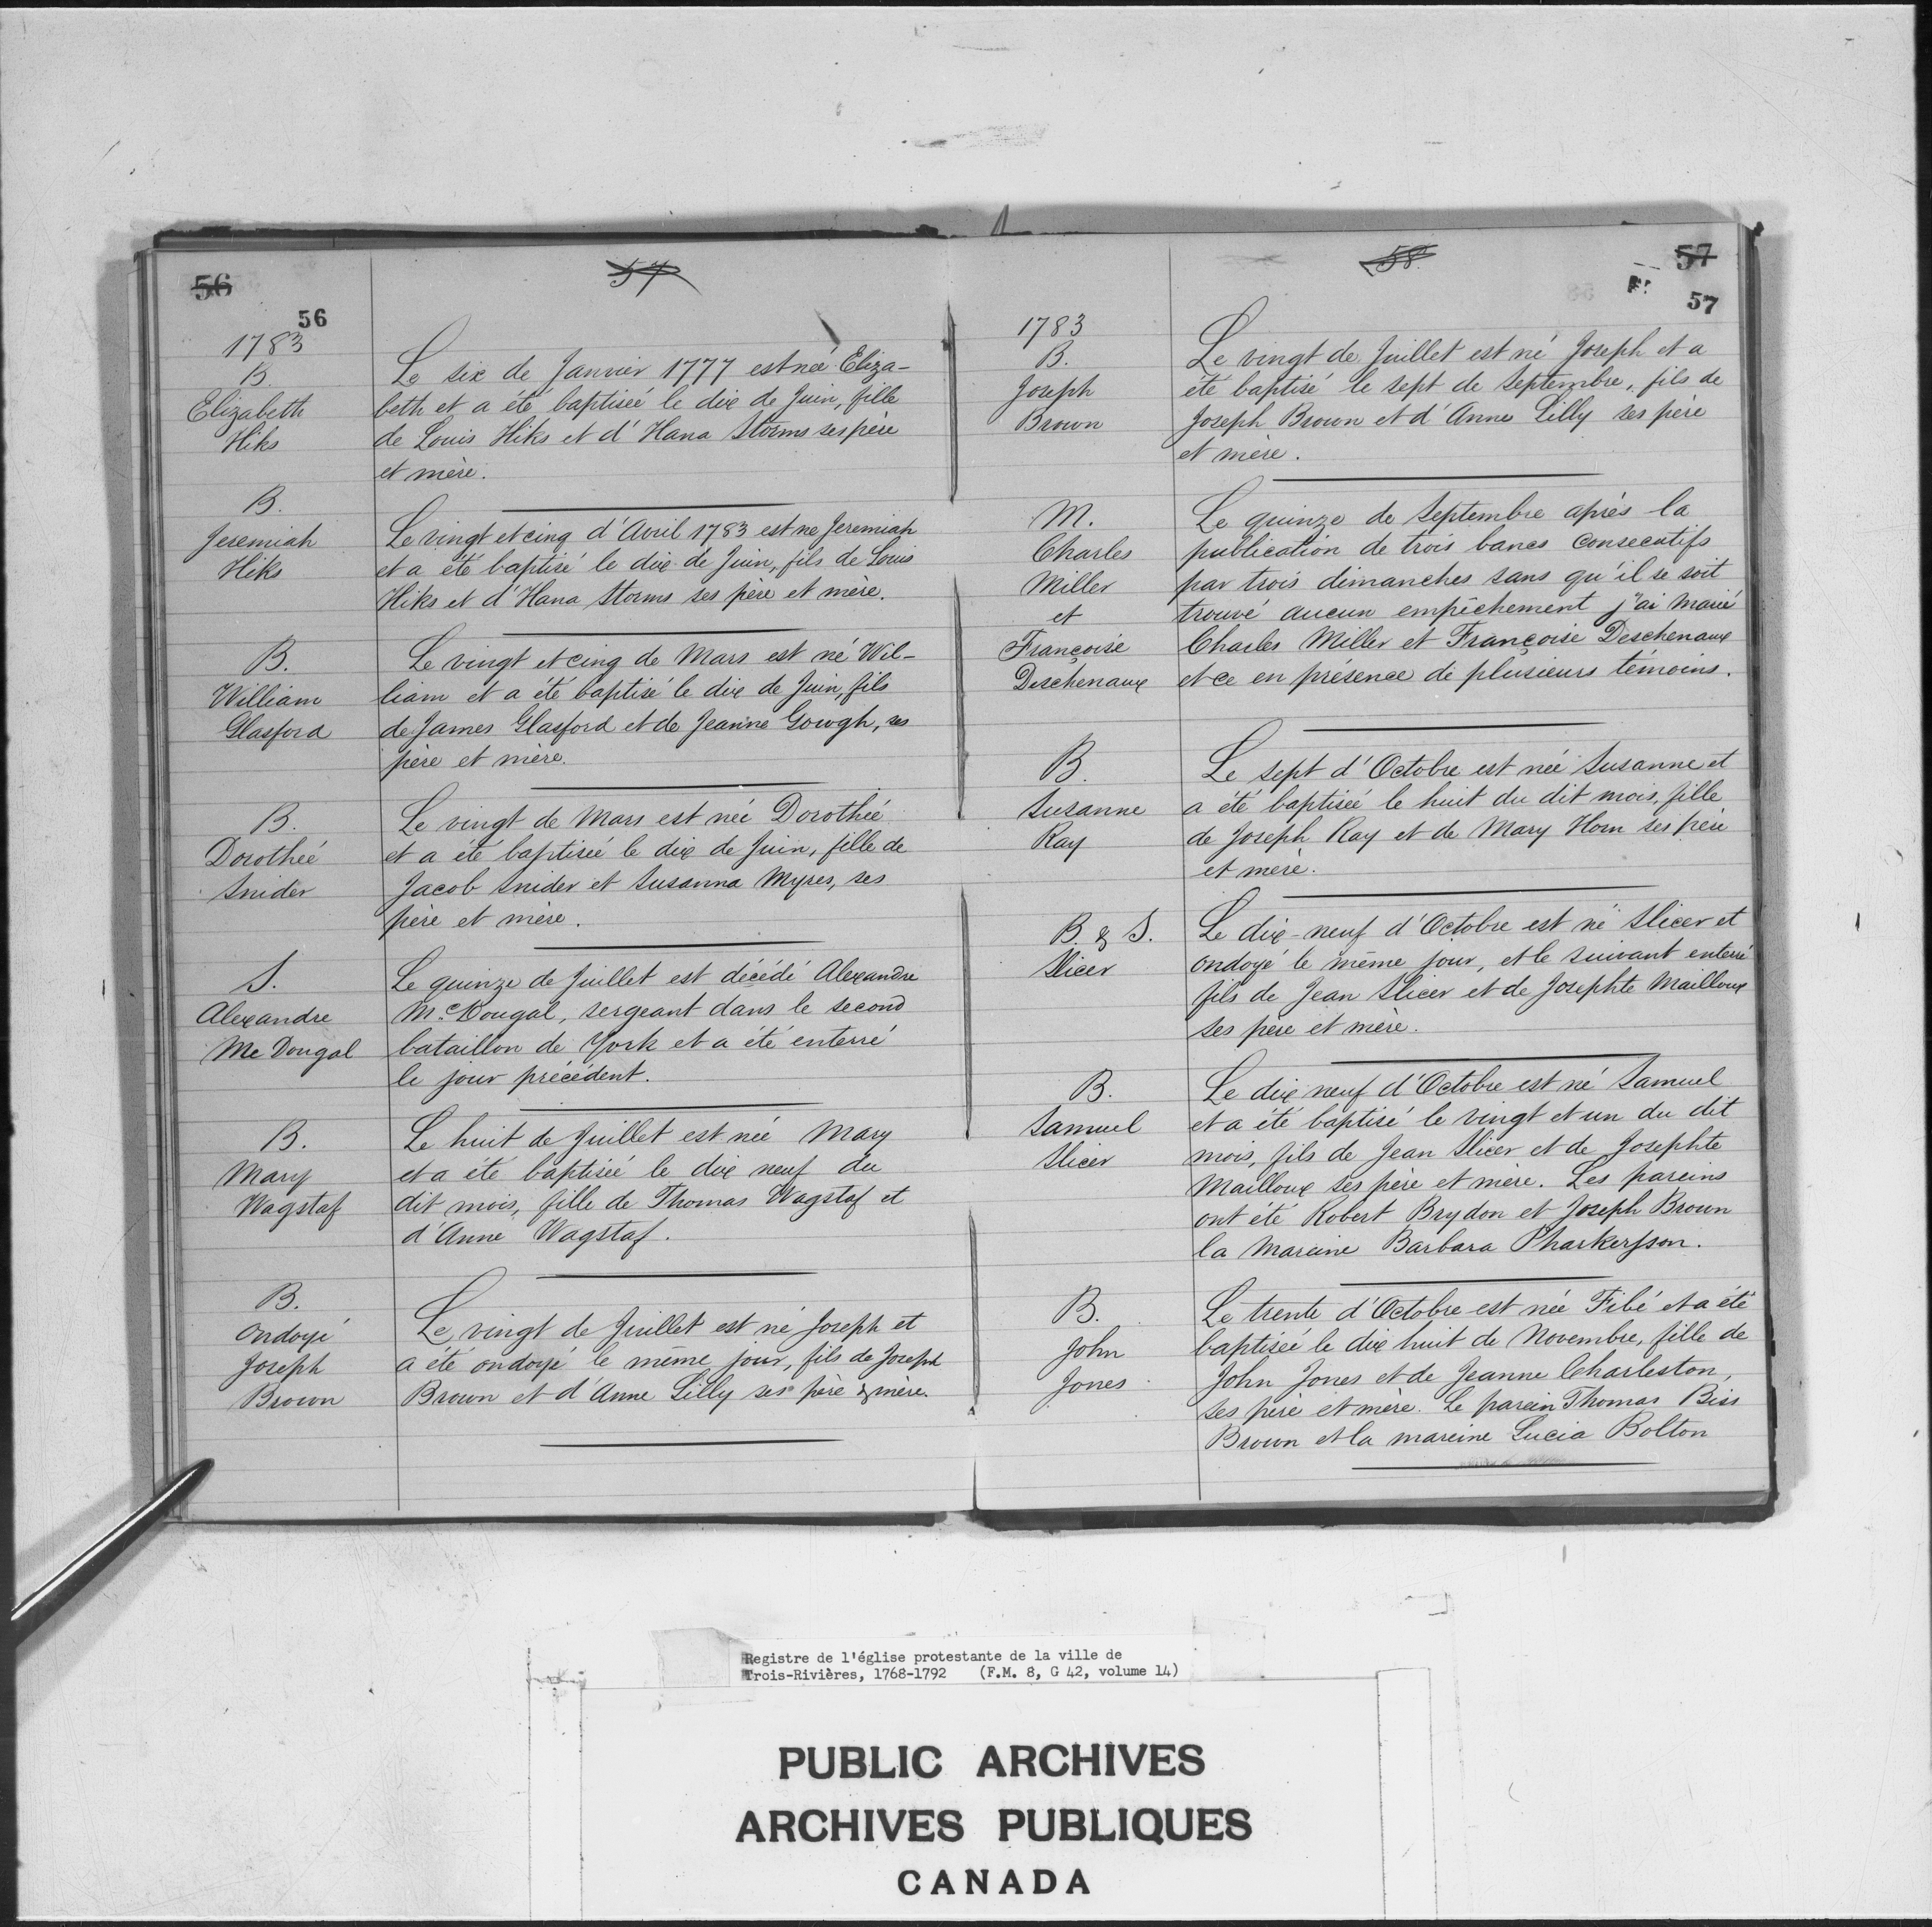 56
57
56
1783
B.
Elizabeth
Hiks
Le six de Janvier 1777 est née Eliza-
beth et a été baptiseé le dix de Juin, fille
de Louis Hiks et d'Hana Storms ses père
et mère.
B.
Jeremiah
Hiks
Le vingt et cinq d'Avril 1783 est ne Jeremiah
et a été baptisé le dix de Juin, fils de Louis
Hiks et d'Hana Storms ses père et mère.
B.
William
Glasford
Le vingt et cinq de Mars est né Wil-
liam et a été baptisé le dix de Juin, fils
de James Glasford et de Jeanne Gowgh, ses
père et mère.
B.
Dorotheé
Snider
Le vingt de Mars est neé Dorotheé
et a été baptiseé le dix de Juin, fille de
Jacob Snider et Susanna Myres, ses
père et mère.
S.
Alexandre
Mc Dougal
Le quinze de Juillet est décédé Alexandre
Mc Dougal, sergeant dans le second
bataillon de York et a été enterré
le jour précédent.
B.
Mary
Wagstaf
Le huit de Juillet est neé Mary
et a été baptiseé le dix neuf du
dit mois, fille de Thomas Wagstaf et
d'Anne Wagstaf.
B.
Ondoyé
Joseph
Brown
Le vingt de Juillet est né Joseph et
a été ondoyé le même jour, fils de Joseph
Brown et d'Anne Lilly ses père & mère.
58
57
57
1783
B.
Joseph
Brown
Le vingt de Juillet est né Joseph et a
été baptisé le sept de Septembre, fils de
Joseph Brown et d'Anne Lilly ses père
et mère.
M.
Charles
Miller
et
Françoise
Deschenaux
Le quinze de Septembre après la
publication de trois bancs consecutifs
par trois dimanches sans qu'il se soit
trouvé aucun empêchement j'ai marié
Charles Miller et Françoise Deschenaux
et ce en présence de plusieurs témoins.
B.
Susanne
Ray
Le sept d'Octobre est neé Susanne et
a été baptiseé le huit du dit mois, fille
de Joseph Ray et de Mary Horn ses père
et mère.
B. & S.
Slicer
Le dix-neuf d'Octobre est né Slicer et
ondoyé le même jour, et le suivant enterré
fils de Jean Slicer et de Josephte Mailloux
ses père et mère.
B.
Samuel
Slicer
Le dix neuf d'Octobre est né Samuel
et a été baptisé le vingt et un du dit
mois, fils de Jean Slicer et de Josephte
Mailloux ses père et mère. Les pareins
ont été Robert Brydon et Joseph Brown
la mareine Barbara Pharkerson.
B.
John
Jones
Le trente d'Octobre est née Fibé et a été
baptisée le dix huit de Novembre, fille de
John Jones et de Jeanne Charleston,
ses père et mère. Le parein Thomas Biss
Brown et la mareine Lucia Bolton
Registre de l'église protestante de la ville de
Trois-Rivières, 1768-1792 (F.M. 8, G 42, volume 14)
PUBLIC ARCHIVES
ARCHIVES PUBLIQUES
CANADA